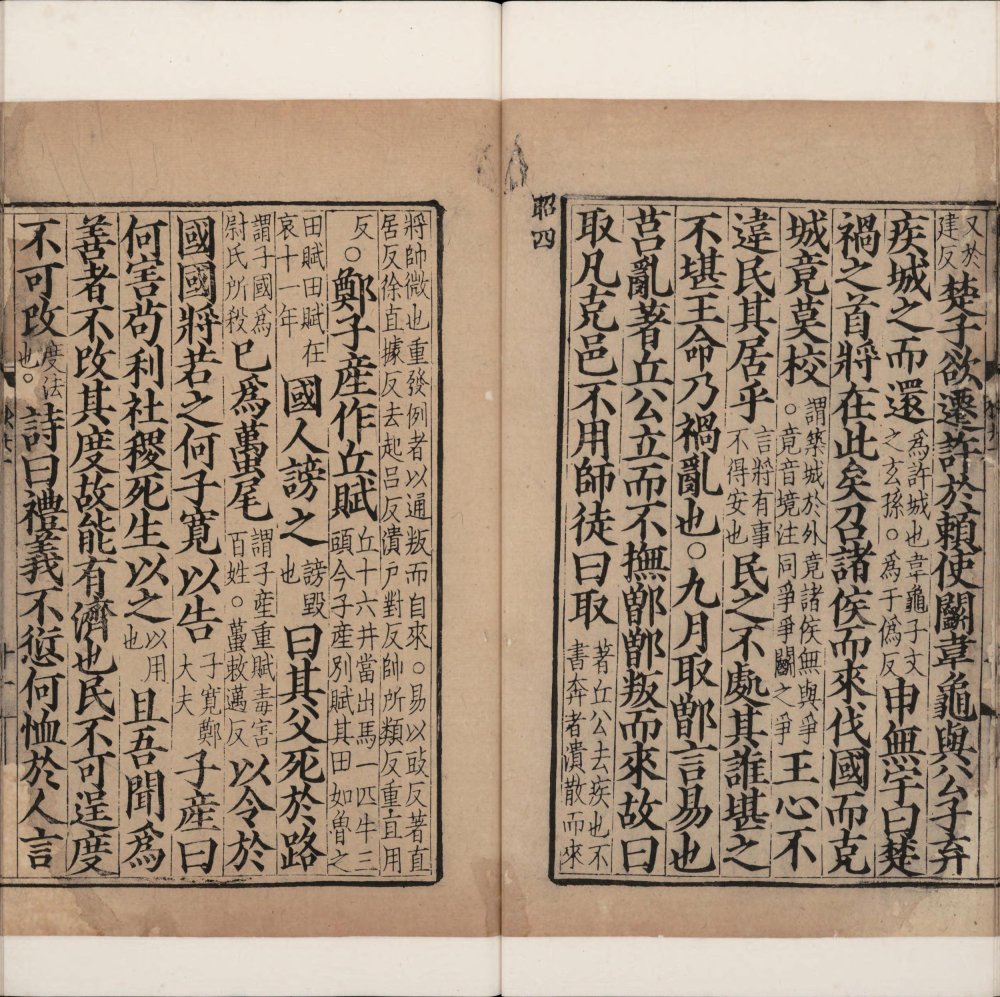 又於建反楚子欲遷許於賴使鬬韋龜與公子弃
疾城之而還為許城也韋龜子文之玄孫○為于偽反申無宇曰楚
禍之首將在此矣召諸侯而來伐國而克
城竟莫校謂築城於外竟諸侯無與爭○竟音境注同爭爭鬭之爭王心不
違民其居乎言將有事不得安也民之不處其誰堪之
不堪王命乃禍亂也○九月取鄫言易也
莒亂著丘公立而不撫鄫鄫叛而來故曰
取凡克邑不用師徒曰取著丘公去疾也不書奔者潰散而來
昭四
將帥微也重發例者以通叛而自來○易以豉反著直
居反徐直據反去起呂反潰戶對反帥所類反重直用
反○鄭子產作丘賦丘十六井當出馬一匹牛三頭今子產別賦其田如魯之
田賦田賦在哀十一年國人謗之謗毀也曰其父死於路
謂子國為尉氏所殺已為蠆尾謂子產重賦毒害百姓○蠆敕邁反以令於
國國將若之何子寬以告子寬鄭大夫子產曰
何害苟利社稷死生以之以用也且吾聞為
善者不改其度故能有濟也民不可逞度
不可改度法也○詩曰禮義不愆何恤於人言